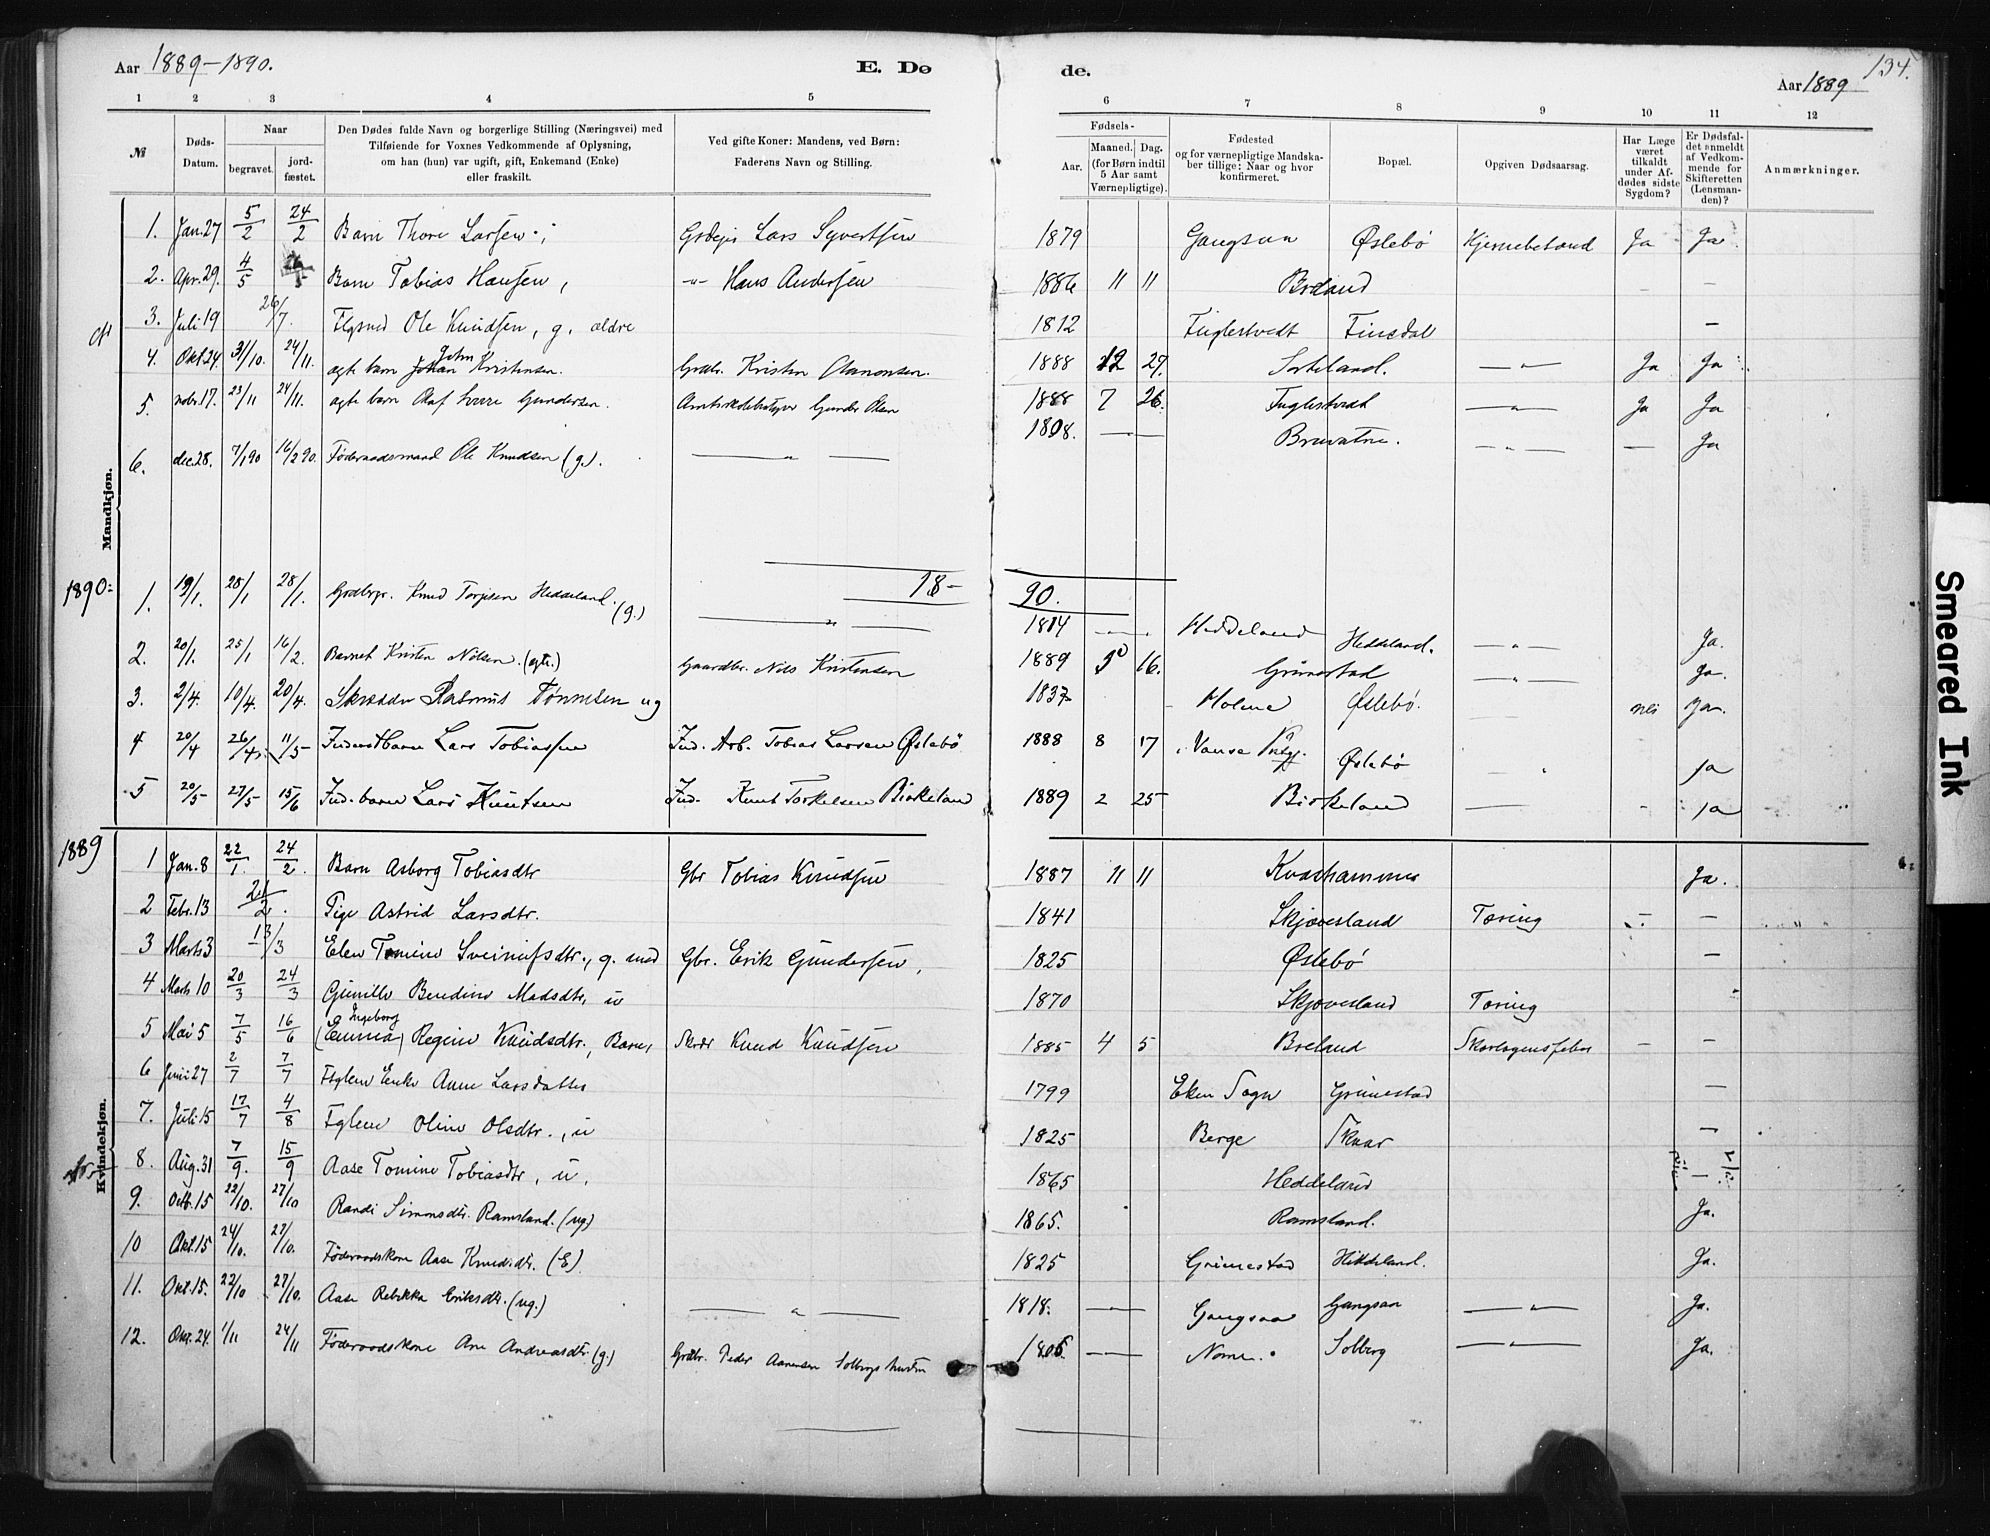 Aar 1889-1890. E. Dø de. Aar 1889 134.
1 2 3 4 5 6 7 8 9 10 11 12
№ Døds-Datum. Naar begravet. jord-fæstet. Den Dødes fulde Navn og borgerlige Stilling (Næringsvei) med Tilføiende for Voxnes Vedkommende af Oplysning, om han (hun) var ugift, gift, Enkemand (Enke) eller fraskilt. Ved gifte Koner: Mandens, ved Børn: Faderens Navn og Stilling. Fødsels- Aar. Maaned. Dag. (for Børn indtil 5 Aar samt Værnepligtige). Fødested og for værnepligtige Mandskaber tillige: Naar og hvor konfirmeret. Bopæl. Opgiven Dødsaarsag. Har Læge været tilkaldt under Afdødes sidste Sygdom? Er Dødsfaldet anmeldt af Vedkommende for Skifteretten (Lensmanden)? Anmærkninger.
Mandkjøn.
1. Jan. 27 5/2 24/2 Barn Thore Larsen Lars Syvertsen 1879 Gangsaa Øslebø Ja Ja
2. Apr. 29. 4/5 Barn Tobias Hansen, -"- Hans Andersen 1886 11 11 Breland - -
3. Juli 19 26/7. Ole Knudsen, g. ældre 1812 Fuglestvedt Finsdal -
4. Okt. 24 31/10. 24/11. ægte barn John Kristensen. Grdbr. Kristen 1888 12 27. -"- Ja Ja
5. nobr. 17. 23/11 24/11. ægte barn Olaf Gundersen. Gunder Olsen 1888 7 26. Fuglestvedt -"- Ja Ja
6. dec. 28. 7/1 90 16/2 90. Føderaadsmand Ole Knudsen (g.). -"- 1808. -"- Bruvatne. -"- - Ja
1890:
18-90.
1. 19/1. 28/1 28/1. Knud Torjisen Heddeland. (g.) -"- 1814 -"- Heddeland Heddeland. -"- Ja.
2. 20/1. 25/1 16/2. Barnet Kristen Nilsen. (ægte.) Gaardbr. Nils Kristensen 1889 16. Grimestad -"- Ja.
3. 2/4. 10/4. 20/4. Skrædder Rasmus Tønnesen ug 1837 Holme Øslebø. nei Ja.
4 20/4 26/4 11/5 Inderstbarn Lars Tobiassen Ind. Arb. Tobias Larsen Øslebø 1888 8 17 Øslebø " ja
5 20/5 27/5 15/6 Ind. barn Lars Knutsen Ind. Knut Torkelsen Birkeland 1889 2 25 Birkeland - ja
1889
Kvindekjøn.
1 Jan. 8 22/1. 24/2. Barn Asborg Tobiasdtr Gbr Tobias Knudsen 1887 11 11 Kvarhammer Ja.
2 Febr. 13 24/2. Pige Astrid Larsdtr. 1841 Skjævesland Tæring - -
3 Marts 3 13/3 Elen Tomine g. med Gbr. Erik Gundersen, 1825 Øslebø -
4 Marts 10 20/3 24/3 Gunille Beredine Madsdtr, u 1870 Skjævesland Tæring
5 Mai 5 7/5 16/6 (Emma) Ingeborg Regine Knudsdtr., Barn, Knud Knudsen 1885 4 5 Breland Skarlagensfeber - -
6 Juni 27 2/7 7/7 Enke Anne Larsdatter 1799 Eken Sogn Grimestad -
7. Juli 15 17/7 4/8 Oline Olsdtr., u 1825 Berge Skaar -
8. Aug. 31 7/9. 15/9 Aase Tomine Tobiasdtr, u, 1865 Heddeland -
9. Octb. 15 22/10. 27/10 Randi Simonsdtr. Ramsland. (ug.) 1865. Ramsland. Ja.
10 Okt. 15 24/10. 27/10. Føderaadskone Aase Knudsdtr. (E). 1825 Grimestad Heddeland. Ja.
11. Okt. 15. 22/10 27/10. Aase Rebekka Eriksdtr. (ug.) -"- 1818. -"- Gangsaa Gangsaa -"- Ja.
12. Okt. 24. 1/11 24/11 Føderaadskone Ane Andreasdtr. (g.) Grdbr. Peder Aanensen Solbergs hustru -"- Nome. Solberg -"- Ja.
Smeared Ink